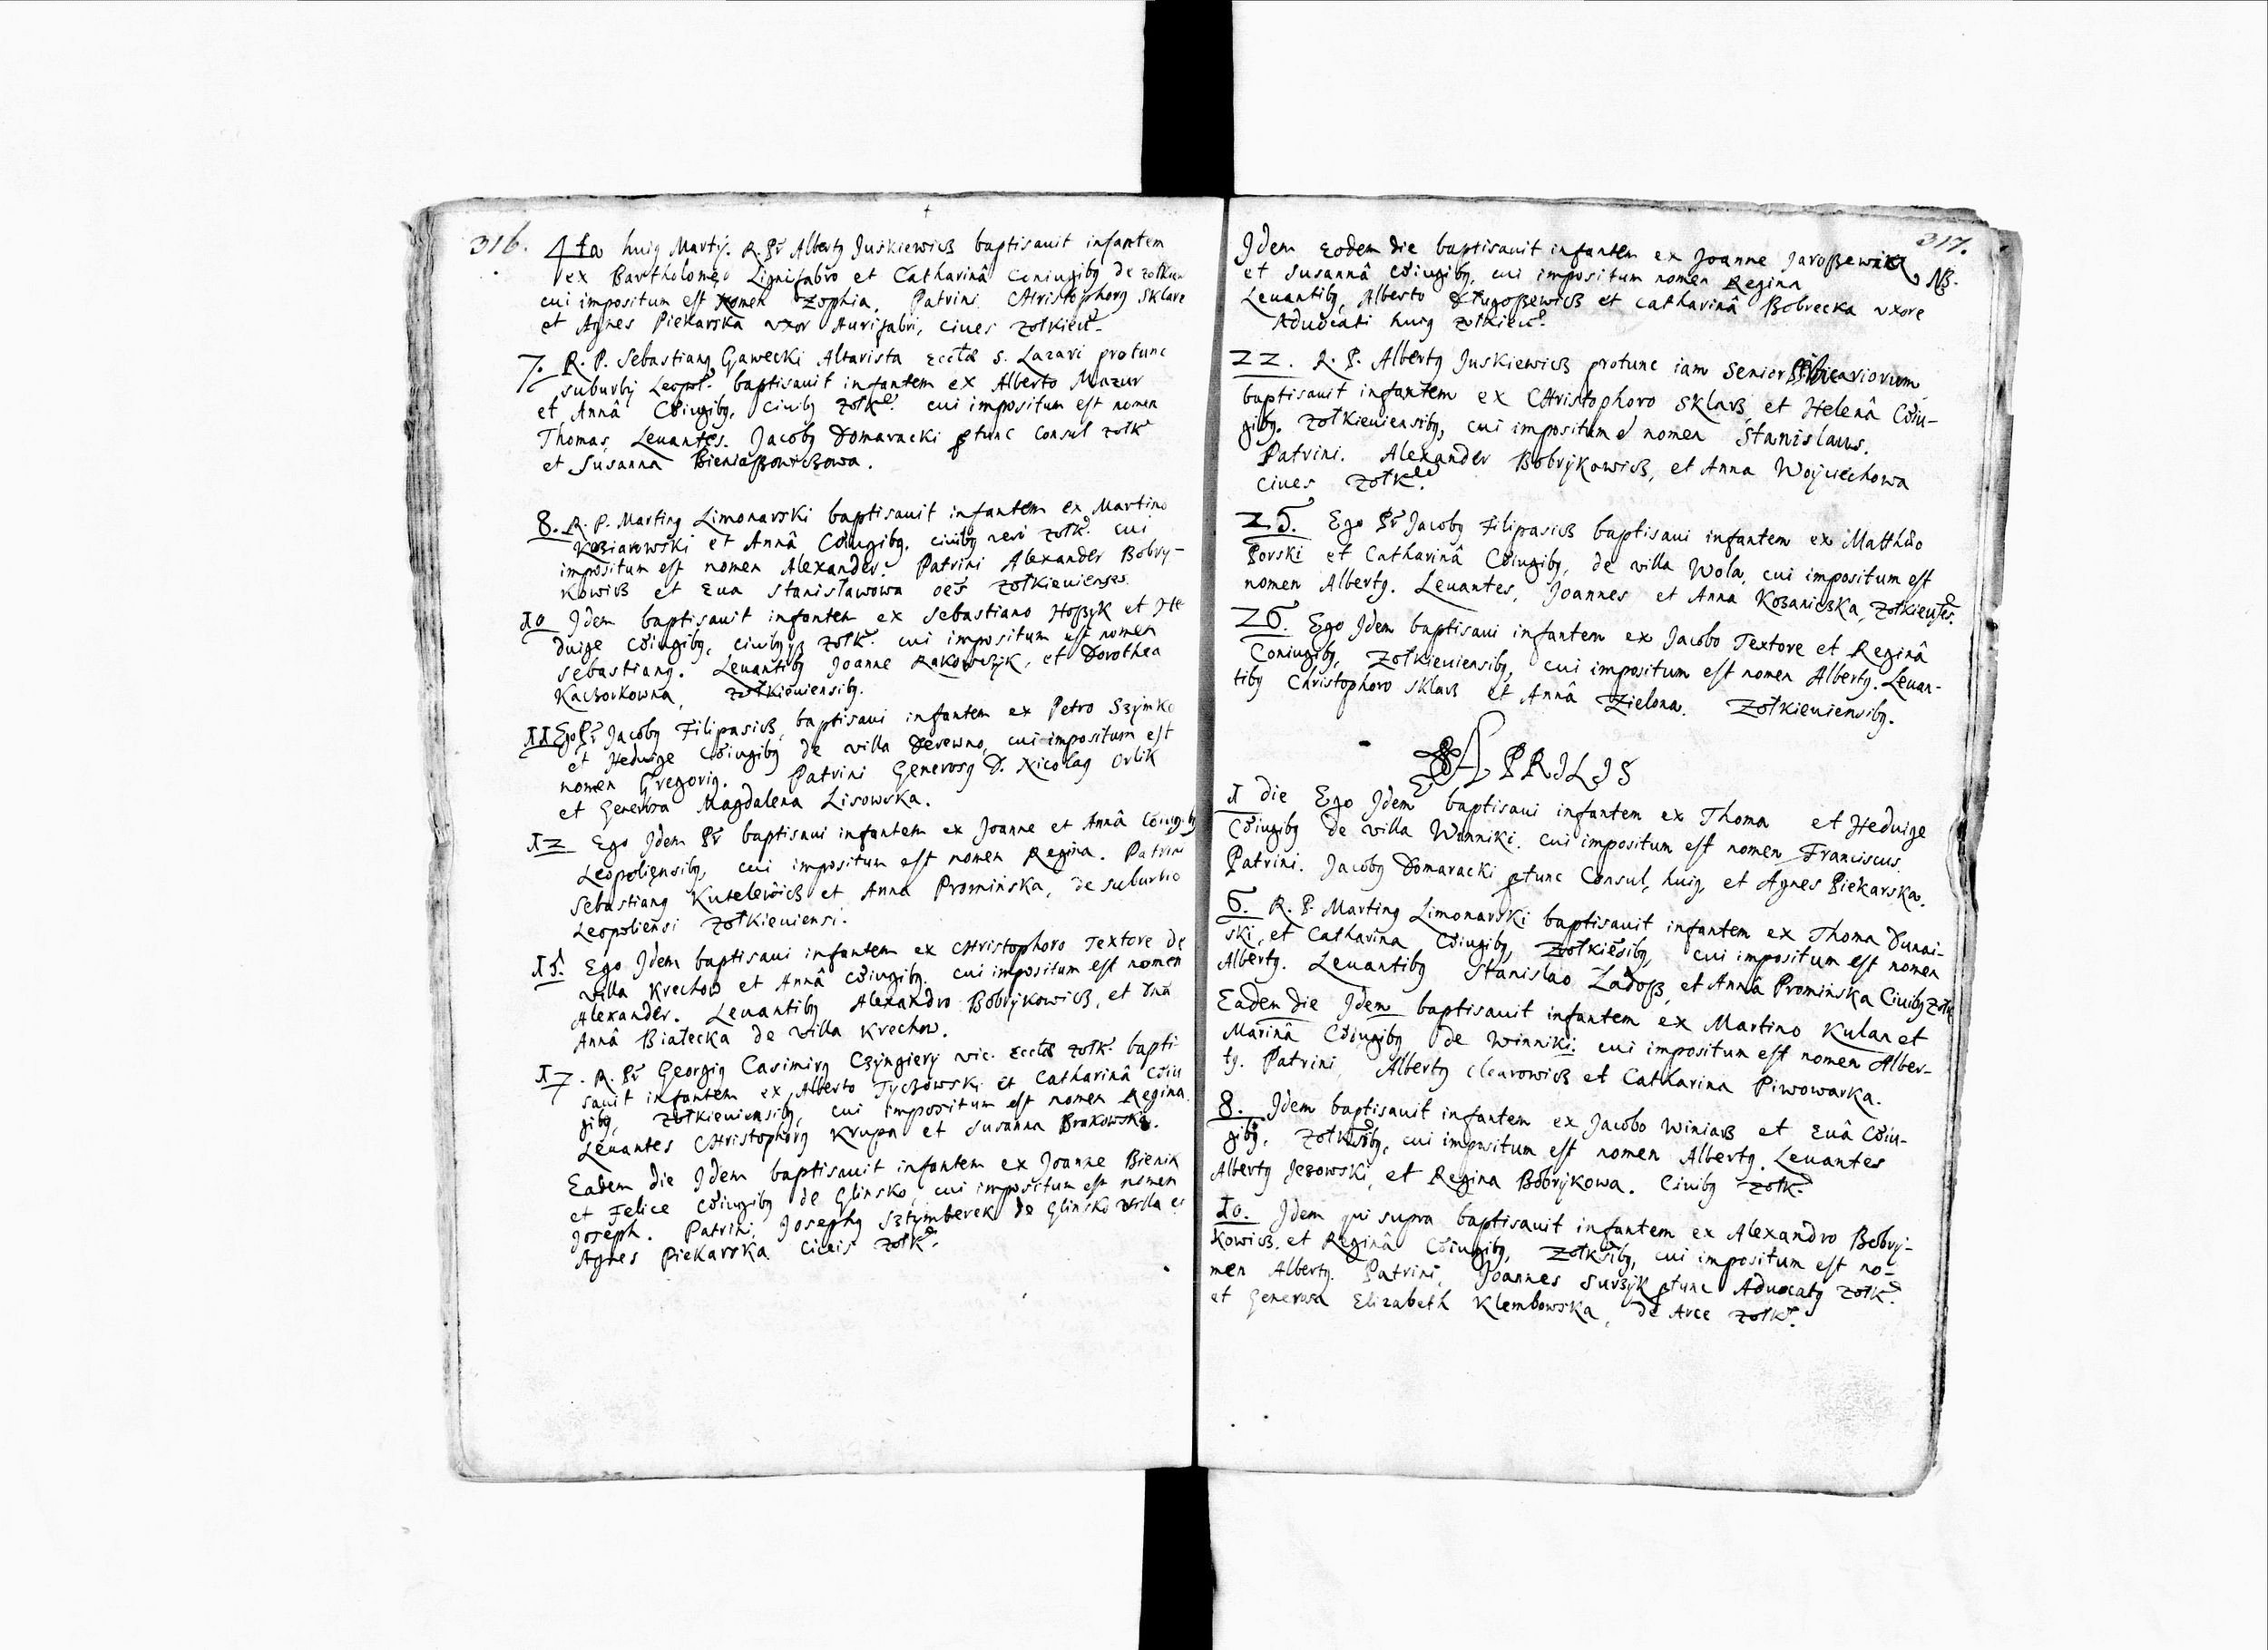 316.
4ta huig Martij. R. Pr Albertg Juskiewicz baptisauit infantem
ex Bartholomeo Lignifabro et Catharinâ Coniugibg de
cui impositum est nomen Zophia. Patrini Christophorg Sklarz
et Agnes Piekarska uxor Aurifabri, ciues Zołkieu.
7. R. P. Sebastiang Gawecki Altarista Eccłæ S. Lazari protunc
suburbij Leopol. baptisauit infantem ex Alberto Mazur
et Annâ Cōiugibg, Ciuibg Zołk. cui impositum est nomen
Thomas, Leuantes. Jacobg Domaracki ptunc Consul Zołk
et Susanna Bieniaszowiczowa.
8. R. P. Marting Limonarski baptisauit infantem ex Martino
Koziarowski et Annâ Cōiugibg. ciuibg Zołk. cui
impositum est nomen Alexander. Patrini Alexander Bobry-
kowicz et Eua Stanisławowa oēs Zołkieuienses
10 Idem baptisauit infantem ex Sebastiano Hoszyk et He
duige Cōiugibg, Zołk. cui impositum est nomen
Sebastiang. Leuantibg Joanne Rakowczyk, et Dorothea
Kaczorkowna, Zołkieuiensibg.
11 Ego Pr Jacobg Filipasicz, baptisaui infantem ex Petro Szymko
et Heduige Cōiugibg de villa Derewno, cui impositum est
nomen Gregorig. Patrini Generosg D. Nicolag Orlik
et Generosa Magdalena Lisowska.
12 Ego Idem Pr baptisaui infantem ex Joanne et Annâ Cōiugibg
Leopoliensibg, cui impositum est nomen Regina. Patrini
Sebastiang Kutelewicz et Anna Promińska, de suburbio
Leopoliensi Zołkieuiensi.
15. Ego Idem baptisaui infantem ex Christophoro Textore de
villa Krechow et Annâ Cōiugibg. cui impositum est nomen
Alexander. Leuantibg Alexandro Bobrÿkowicz, et Dnâ
Annâ Białecka de villa Krechow.
17. R. Pr Georgig Casimirg Czyngierÿ vic. Eccłæ Zołk. bapti-
sauit infantem ex Alberto Tyczowski et Catharinâ Cōiu
gibg, Zołkieuiensibg, cui impositum est nomen Regina.
Leuantes Christophorg Krupa et Susanna Brakowska.
Eadem die Idem baptisauit infantem ex Joanne Bienik
et Felice Cōiugibg de Glinsko, cui impositum est nomen
Joseph. Patrini, Josephg Sztymberek de Glinsko villa et
Agnes Piekarska Ciuis Zołk.
317.
Idem Eodem die baptisauit infantem ex Joanne Jaroszewicz
et Susannâ Cōiugibg, cui impositum nomen Regina NB.
Leuantibg, Alberto Długoszewicz et Catharinâ Bobrecka uxore
Aduocati huig Zołkieu.
22. R. P. Albertg Juskiewicz protunc iam Senior Vicariorum
baptisauit infantem ex Christophoro Sklarz et Helenâ Cōiu-
gibg. Zołkieuiensibg, cui impositum ē nomen Stanislaus.
Patrini. Alexander Bobrÿkowicz, et Anna Woyciechowa
ciues Zołk.
25. Ego Pr Jacobg Filipasicz baptisaui infantem ex Matthæo
Porski et Catharinâ Cōiugibg, de villa Wola, cui impositum est
nomen Albertg. Leuantes, Joannes et Anna Kozaniczka, Zołkieuses.
26. Ego Idem baptisaui infantem ex Jacobo Textore et Reginâ
Coniugibg, Zołkieuiensibg, cui impositum est nomen Albertg. Leuan-
tibg Christophoro Sklarz et Annâ Zielona. Zołkieuiensibg.
APRILIS
1 die Ego Idem baptisaui infantem ex Thoma et Heduige
Cōiugibg de villa Winniki. cui impositum est nomen Franciscus.
Patrini. Jacobg Domaracki ptunc Consul, huig, et Agnes Piekarska.
6. R. P. Marting Limonarski baptisauit infantem ex Thoma Dunai-
ski, et Catharina Cōiugibg, Zołkiēsibg, cui impositum est nomen
Albertg. Leuantibg Stanislao Ładosz, et Annâ Promińska Ciuibg Zołk
Eadem die Idem baptisauit infantem ex Martino Kulan et
Marinâ Cōiugibg de Winniki. cui impositum est nomen Alber-
tg. Patrini Albertg et Catharina Piwowarka.
8. Idem baptisauit infantem ex Jacobo Winiarz et Euâ Cōiu-
gibg. Zołksibg, cui impositum est nomen Albertg. Leuantes
Albertg Jezowski, et Regina Bobrÿkowa. Ciuibg Zołk.
10. Idem qui supra baptisauit infantem ex Alexandro Bobrÿ-
kowicz. et Reginâ Cōiugibg, Zołksibg, cui impositum est no-
men Albertg. Patrini, Joannes Surzÿk ptunc Aduocatg Zołk.
et Generosa Elizabeth Klembowska, de Arce Zołk.